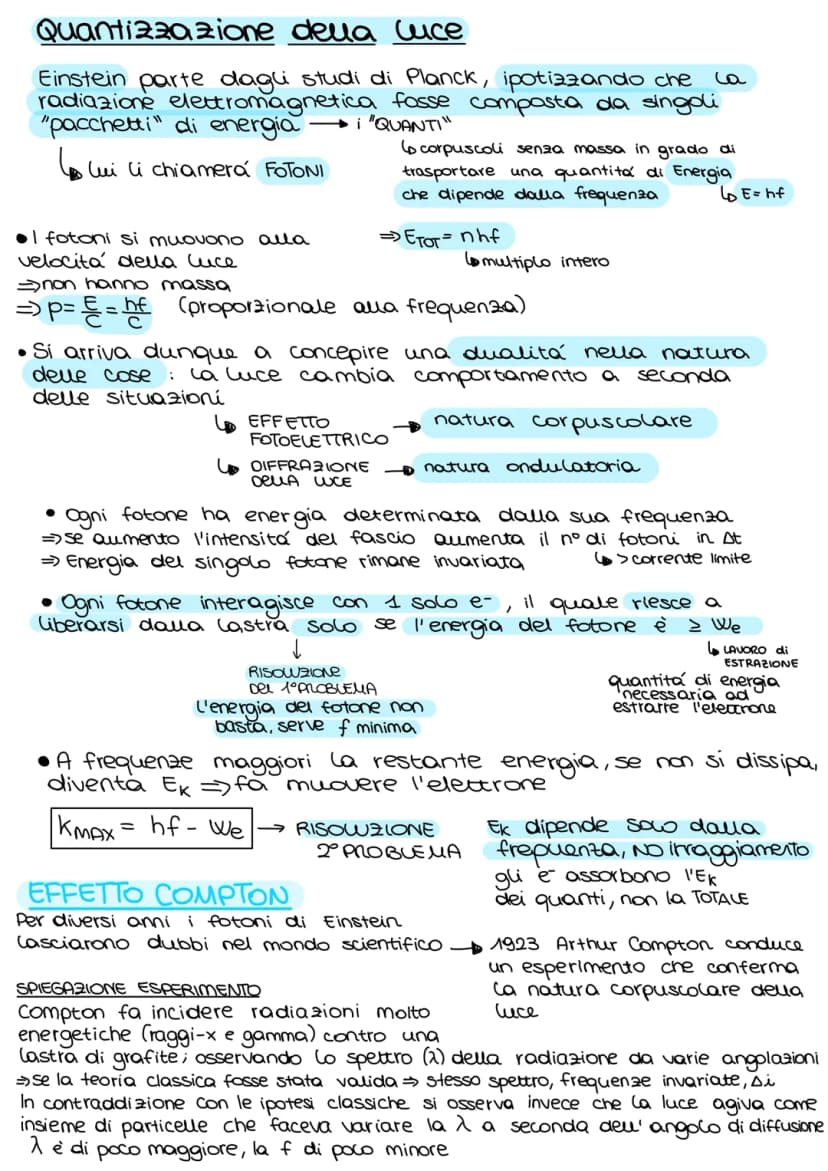 Quantizzazione della luce
Einstein parte dagli studi di Planck, ipotizzando che la
radiazione elettromagnetica fosse composta da singoli
"pacchetti" di energia → i "QUANTI"
↳ lui li chiamerá FOTONI
↳ corpuscoli senza massa in grado di
trasportare una quantitá di Energia
che dipende dalla frequenza
↳ E= hf
• I fotoni si muovono alla
velocitá della luce
⇒ non hanno massa
⇒ p= E/C = hf/C (proporzionale alla frequenza)
⇒ ETOT = nhf
↳ multiplo intero
• Si arriva dunque a concepire una dualitá nella natura
delle cose : la luce cambia comportamento a seconda
delle situazioni
↳ EFFETTO
FOTOELETTRICO → natura corpuscolare
↳ DIFFRAZIONE
DELLA LUCE → natura ondulatoria
• Ogni fotone ha energia determinata dalla sua frequenza
⇒ se aumento l'intensitá del fascio aumenta il n° di fotoni in Δt
⇒ Energia del singolo fotone rimane invariata
↳ > corrente limite
• Ogni fotone interagisce con 1 solo e-, il quale riesce a
liberarsi dalla lastra solo se l'energia del fotone è ≥ We
↓
RISOLUZIONE
DEL 1° PROBLEMA
L'energia del fotone non
basta, serve f minima
↳ LAVORO di
ESTRAZIONE
quantitá di energia
necessaria ad
estrarre l'elettrone
• A frequenze maggiori la restante energia, se non si dissipa,
diventa EK ⇒ fa muovere l'elettrone
KMAX = hf - We → RISOLUZIONE
2° PROBLEMA
EK dipende solo dalla
frequenza, NO irraggiamento
gli e- assorbono l'EK
dei quanti, non la TOTALE
EFFETTO COMPTON
Per diversi anni i fotoni di Einstein
lasciarono dubbi nel mondo scientifico →
1923 Arthur Compton conduce
un esperimento che conferma
la natura corpuscolare della
luce
SPIEGAZIONE ESPERIMENTO
Compton fa incidere radiazioni molto
energetiche (raggi-x e gamma) contro una
lastra di grafite; osservando lo spettro (λ) della radiazione da varie angolazioni
⇒ se la teoria classica fosse stata valida ⇒ stesso spettro, frequenze invariate, Δi
In contraddizione con le ipotesi classiche si osserva invece che la luce agiva come
insieme di particelle che faceva variare la λ a seconda dell'angolo di diffusione
λ è di poco maggiore, la f di poco minore